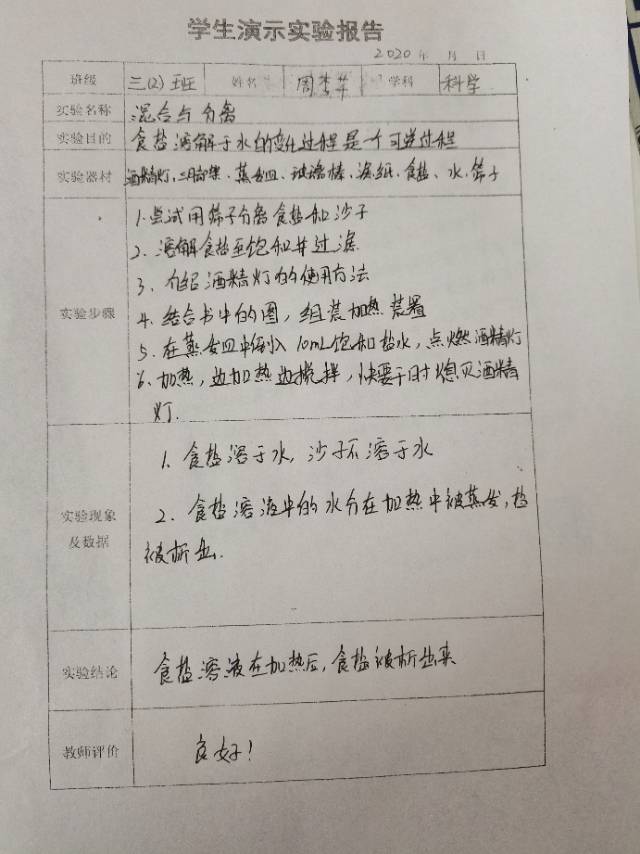 学生演示实验报告
2020 年 月 日
班级 三(2)班 姓名 周 学科 科学
实验名称 混合与分离
实验目的 食盐溶解于水的变化过程是一个可逆过程
实验器材 酒精灯、三脚架、蒸发皿、玻璃棒、滤纸、食盐、水、筛子
实验步骤
1.尝试用筛子分离食盐和沙子
2.溶解食盐至饱和并过滤
3.介绍酒精灯的使用方法
4.结合书中的图，组装加热装置
5.在蒸发皿中倒入10mL饱和盐水，点燃酒精灯
6.加热，边加热边搅拌，快要干时熄灭酒精
灯.
实验现象
及数据
1.食盐溶于水，沙子不溶于水
2.食盐溶液中的水分在加热中被蒸发，盐
被析出.
实验结论 食盐溶液在加热后，食盐被析出来
教师评价 良好！